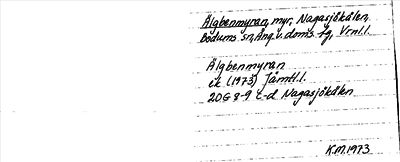 Älgbenmyran, myr, Nagasjökälen,
Bodums sn, Ång. v. doms. fg, Vrnl.l.
Älgbenmyran
ek (1973) Jämtl.l.
20G 8-9 c-d Nagasjökälen
K.M. 1973